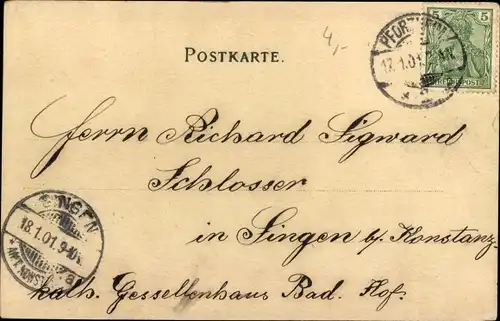 4,-
POSTKARTE.
5 5
PFORZHEIM
17.1.01
REICHSPOST
Herrn Richard Sigward
Schlosser
in Singen b/ Konstanz.
SINGEN
18.1.01. 9-10V.
kath. Gesellenhaus Bad. Hof.